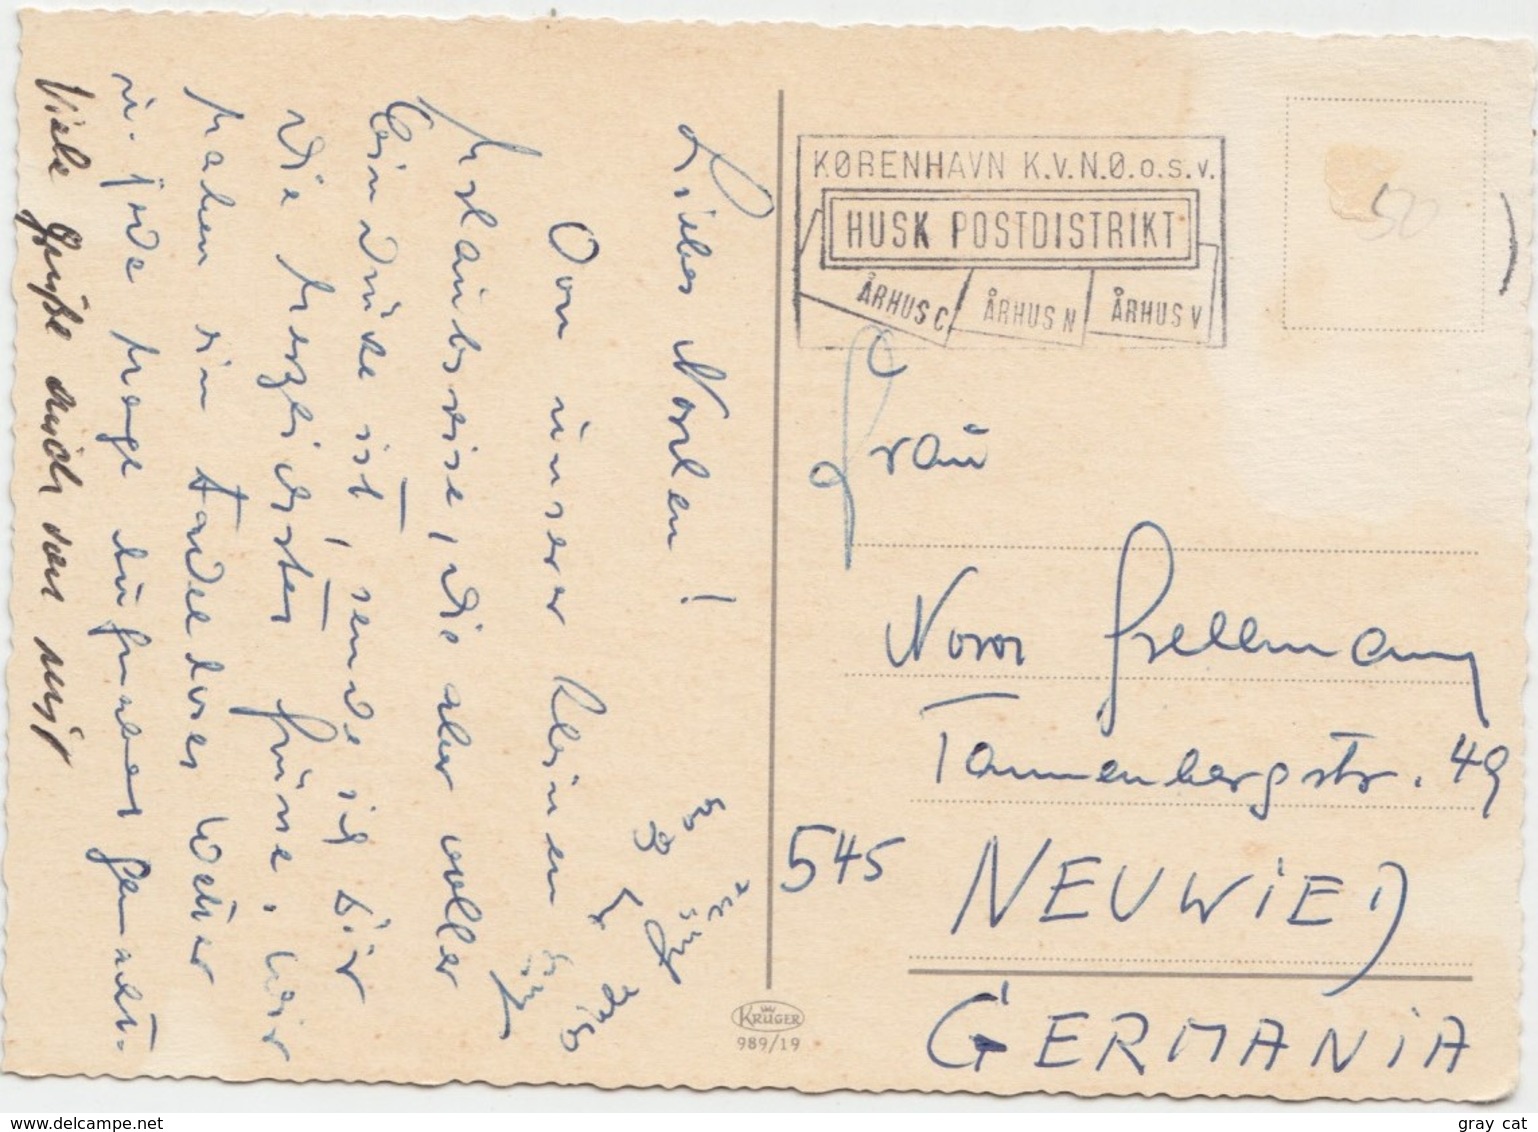 Liebes Norlen!
Von unserer kleinen
Urlaubsreise, die aber voller
Eindrücke ist, sende ich Dir
die herzlichsten Grüße. Wir
haben ein tadelloses Wetter
u. jede Menge Aufnahmen gemacht.
Viele Grüße auch von mir
KØBENHAVN K.V.N.Ø.o.s.v.
HUSK POSTDISTRIKT
ÅRHUS C ÅRHUS N ÅRHUS V
50
Frau
Nora Hellmann
Tannenbergstr. 49
545 NEUWIED
GERMANIA
KRÜGER
989/19
www.delcampe.net
gray cat